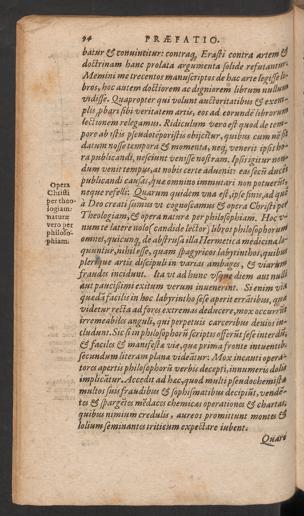 94 PRÆFATIO.
batur & convincitur: contraq́, Erasti contra artem &
doctrinam hanc prolata argumenta solide refutantur.
Memini me trecentos manuscriptos de hac arte legisse li-
bros, hoc autem doctiorem ac digniorem librum nullum
vidisse. Quapropter qui volunt auctoritatibus & exem-
plis probari sibi veritatem artis, eos ad eorundē librorum
lectionem relegamus. Ridiculum vero est quod de tem-
pore ab istis pseudotēporistis obijcitur, quibus cum nō sit
datum nosse tempora & momenta, neq, venerit ipsis ho-
ra publicandi, nesciunt venisse nostram. Ipsi igitur non-
dum venit tempus, at nobis certe advenit: eas secū ducēs
publicandi causas, quæ omnino immutari non potuerūt,
neque refelli: Quarum quidem una est, ipse finis, ad quē
à Deo creati sumus ut cognoscamus & opera Christi per
Theologiam, & opera naturæ per philosophiam. Hoc v-
num te latere nolo (candide lector) libros philosophorum
omnes, quicunq, de abstrusa illa Hermetica medicina lo-
quuntur, nihil esse, quam spagyricos labyrinthos, quibus
plerique artis discipuli in varias ambages, & viarum
fraudes incidunt. Ita ut ad hunc usque diem aut nulli
aut paucissimi exitum verum invenerint. Si enim via
quædā facilis in hoc labyrintho sese aperit errātibus, quæ
videtur recta ad fores extremas deducere, mox occurrūt
irremeabiles anguli, qui perpetuis carceribus devios in-
cludunt. Sic si in philosophorū scriptis offerāt sese iter adū,
& faciles & manifestæ viæ, quæ prima fronte intuentib.
secundum literam plana videātur: Mox incauti opera-
tores apertis philosophorū verbis decepti, innumeris dolis
implicātur. Accedit ad hæc, quod multi pseudochemistæ
multos suis fraudibus & sophismatibus decipiūt, vendē-
tes & spargētes mēdaces chemicas operationes & chartas,
quibus nimium credulis, aureos promittunt montes &
lolium seminantes triticum expectare iubent.
Quare
Opera
Christi
per theo-
logiam:
naturæ
vero per
philoso-
phiam.